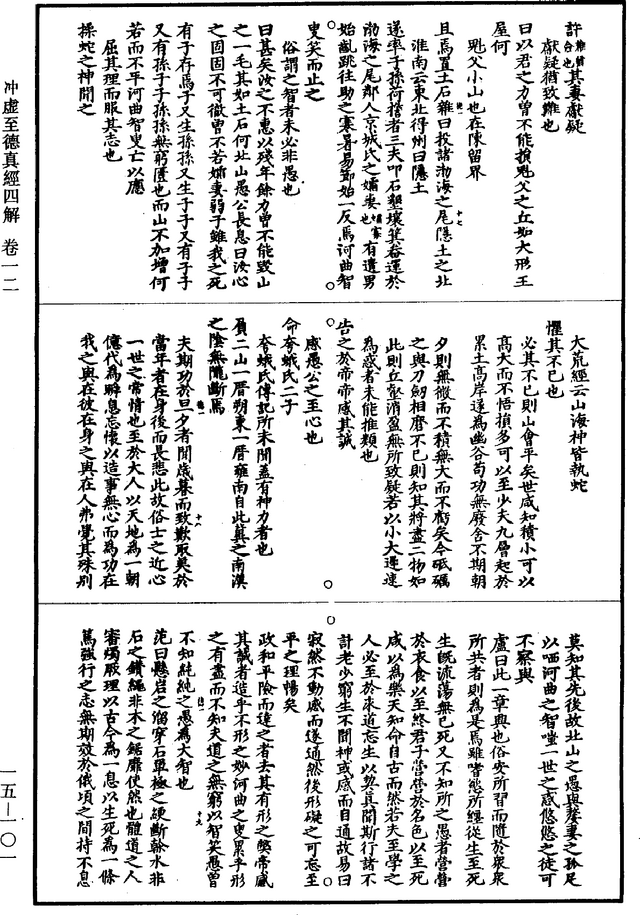 冲虛至德真經四解 卷一二
一五—一〇一
許雜猶僉也其妻獻疑
獻疑猶致難也
曰以君之力曾不能損魁父之丘如太形王
屋何
魁父小山也在陳留界
且焉置土石雜曰投諸渤海之尾隱土之北
淮南云東北得州曰隱土
遂率子孫荷擔者三夫叩石墾壤箕畚運於
渤海之尾鄰人京城氏之孀妻孀寡也有遺男
始齔跳往助之寒暑易節始一反焉河曲智
叟笑而止之
俗謂之智者未必非愚也
曰甚矣汝之不惠以殘年餘力曾不能毀山
之一毛其如土石何北山愚公長息曰汝心
之固固不可徹曾不若孀妻弱子雖我之死
有子存焉子又生孫孫又生子子又有子子
又有孫子子孫孫無窮匱也而山不加增何
若而不平河曲智叟亡以應
屈其理而服其志也
操蛇之神聞之
大荒經云山海神皆執蛇
懼其不已也
必其不已則山會平矣世咸知積小可以
高大而不悟損多可以至少夫九層起於
累土高岸遂為幽谷苟功無廢舍不期朝
夕則無微而不積無大而不虧矣今砥礪
之與刀劒相磨不已則知其將盡二物如
此則丘壑消盈無所致疑若以小大遲速
為惑者未能推類也
告之於帝帝感其誠
感愚公之至心也
命夸蛾氏二子
夸蛾氏傳記所未聞蓋有神力者也
負二山一厝朔東一厝雍南自此冀之南漢
之陰無隴斷焉
夫期功於旦夕者聞歲暮而致歎取美於
當年者在身後而長悲此故俗士之近心
一世之常情也至於大人以天地為一朝
億代為瞬息忘懷以造事無心而為功在
我之與在彼在身之與在人弗覺其殊別
莫知其先後故北山之愚與嫠妻之孤足
以哂河曲之智嗤一世之惑悠悠之徒可
不察與
盧曰此一章興也俗安所習而隨於衆衆
所共者則為是焉雖嗜慾所纏從生至死
生旣流蕩無已死又不知所之愚者營營
於衣食以至終君子營營於名色以至死
咸以為樂天知命自古而然若夫至學之
人必至於求道忘生以契真聞斯行諸不
計老少窮生不聞神或感而自通故易曰
寂然不動感而遂通然後形礙之可忘至
平之理暢矣
政和平險而達之者去其有形之弊帝感
其誠者造乎不形之妙河曲之叟累乎形
之有盡而不知夫道之無窮以智笑愚曾
不知純純之愚為大智也
范曰懸岩之溜穿石單極之綆斷幹水非
石之鑽繩非木之鋸靡使然也體道之人
審燭厥理以古今為一息以生死為一條
篤強行之志無期效於俄頃之間持不息